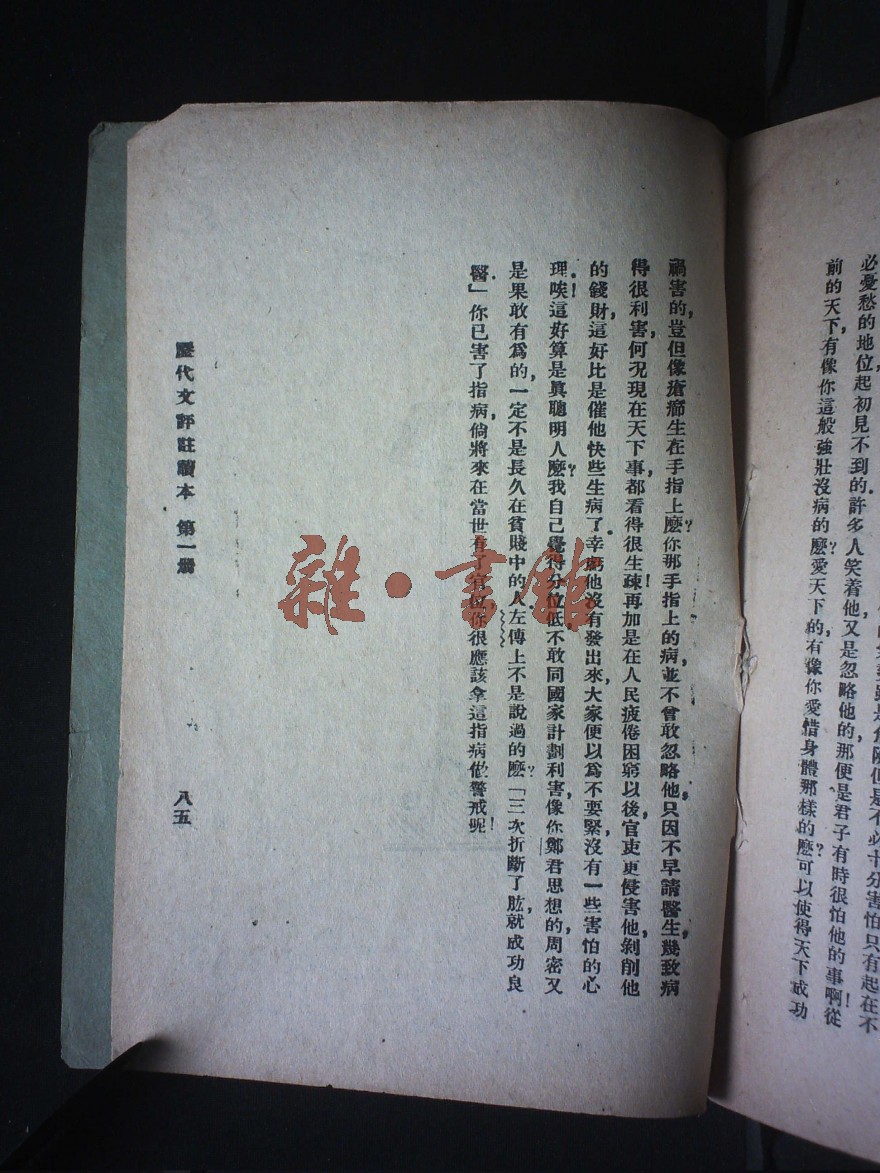 必憂愁的地位,起初見不到的,許多人笑着他,又是忽略他的,那便是君子有時很怕他的事啊!從
前的天下,有像你這般強壯沒病的麼?愛天下的,有像你愛惜身體那樣的麼?可以使得天下成功
禍害的,豈但像瘡癤生在手指上麼?你那手指上的病,並不曾敢忽略他,只因不早請醫生,幾致病
得很利害,何況現在天下事,都看得很生疎!再加是在人民疲倦困窮以後,官吏更侵害他,剝削他
的錢財,這好比是催他快些生病了.幸虧他沒有發出來,大家便以爲不要緊,沒有一些害怕的心
理.唉!這好算是眞聰明人麼?我自己覺得分位低,不敢同國家計劃利害,像你鄭君思想的周密,又
是果敢有爲的,一定不是長久在貧賤中的人.左傳上不是說過的麼?「三次折斷了肱,就成功良
醫.」你已害了指病,倘將來在當世有了官位,你很應該拿這指病做警戒呢!
歷代文評註讀本 第一册
八五
雜·書館